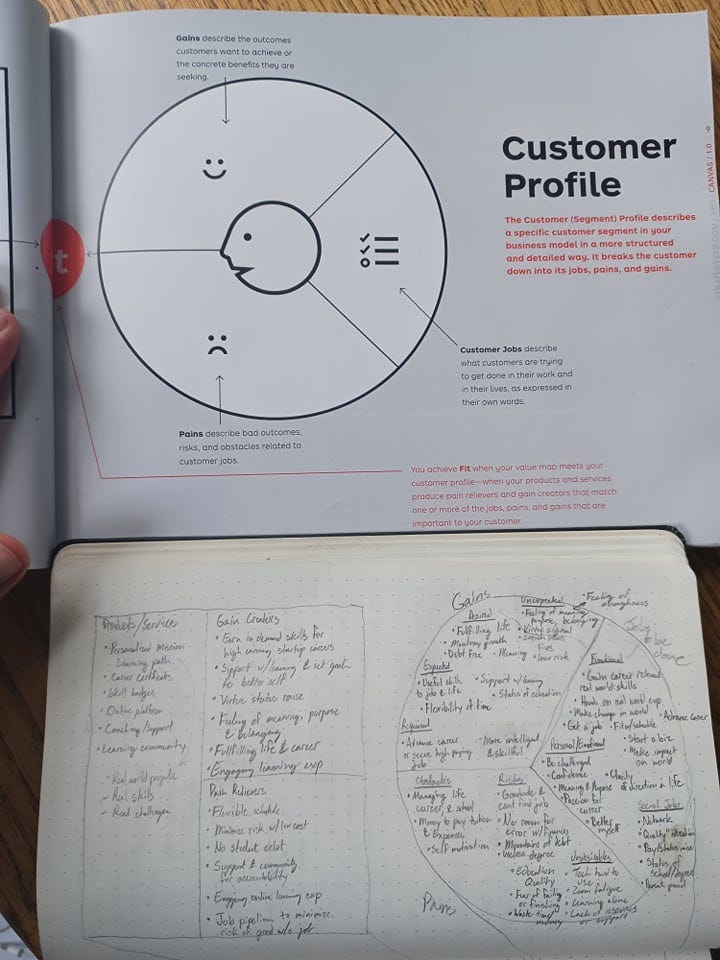 Gains describe the outcomes
customers want to achieve or
the concrete benefits they are
seeking.
Customer
Profile
The Customer (Segment) Profile describes
a specific customer segment in your
business model in a more structured
and detailed way. It breaks the customer
down into its jobs, pains, and gains.
CANVAS / 1.0
9
t
Customer Jobs describe
what customers are trying
to get done in their work and
in their lives, as expressed in
their own words.
Pains describe bad outcomes,
risks, and obstacles related to
customer jobs.
You achieve Fit when your value map meets your
customer profile—when your products and services
produce pain relievers and gain creators that match
one or more of the jobs, pains, and gains that are
important to your customer.
Products/Services
• Personalized mission
Learning path
• Career certificats
• Skill badges
• Online platform
• Coaching/Support
• Learning community
– Real world projects
– Real skills
– Real challenges
Gain Creators
• Earn in demand skills for
high earning startup careers
• Support w/ learning & set goals
to better self
• Virtue status raise
• Feeling of meaning, purpose
& Belonging
• Fullfilling life & career
• Engaging learning exp
Pain Relievers
• Flexible schedule
• Minimize risk w/ low cost
• No student debt
• Support & community
for accountability
• Engaging online learning exp
• Job pipeline to minimize
risk of grad w/o job
Gains
Unexpected
• Feeling of
• Feeling of meaning,
purpose, belonging
• Virtue signal
Desired
• Fulfilling life
• Monetary growth
• Debt free
• Meaning
• low risk
Expected
• Useful skills
to job & life
• Flexibility of time
• Support w/ learning
• Status of education
Required
• Advance career
or secure high paying
job
• More intelligent
& skillful
Jobs
to be
done
Functional
• Gain career relevant
real world skills
• Hands on real world exp
• Make change in world
• Advance career
• Get a job
• Fits/schedule
• Start a biz
• Make impact
on world
Personal/Emotional
• Be challenged
• Confidence
• Clarity
• Meaning & Purpose
of direction in life
• Passion for
career
• Better
myself
Social Jobs
• Network
• "Quality" education
• Pay/Status raise
• Status of
school/degree
• Parent proud
Obstacles
• Managing life
career, & school
• Money to pay tuition
& Expenses
• Self motivation
Risks
• Graduate &
cant find job
• No room for
error w/ finances
• Mountains of debt
• Useless degree
• Education
Quality
• Fear of failing
or finishing
• Waste time/
money
Undesirables
• Tech hard to
use
• Zoom fatigue
• Learning alone
• Lack of resources
or support
Pains